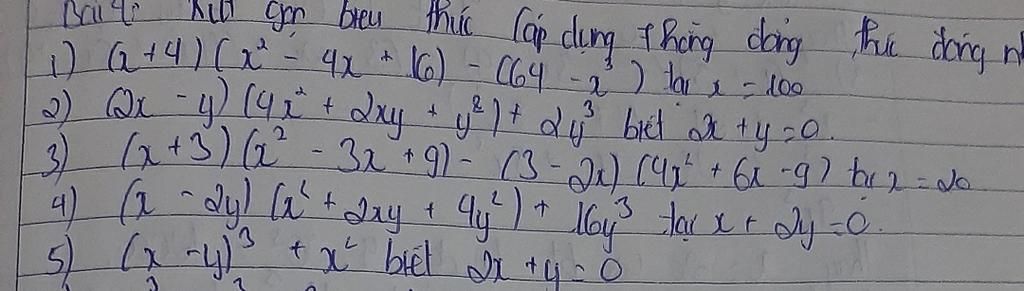 Bài 4: Rút gọn biểu thức (áp dụng hằng đẳng thức đáng
1) (x+4)(x² - 4x + 16) - (64 - x³) tại x = 100
2) (2x - y)(4x² + 2xy + y²) + 2y³ biết 2x + y = 0.
3) (x+3)(x² - 3x + 9) - (3 - 2x)(4x² + 6x - 9) tại x = 20
4) (x - 2y)(x² + 2xy + 4y²) + 16y³ tại x + 2y = 0.
5) (x - y)³ + x² biết 2x + y = 0